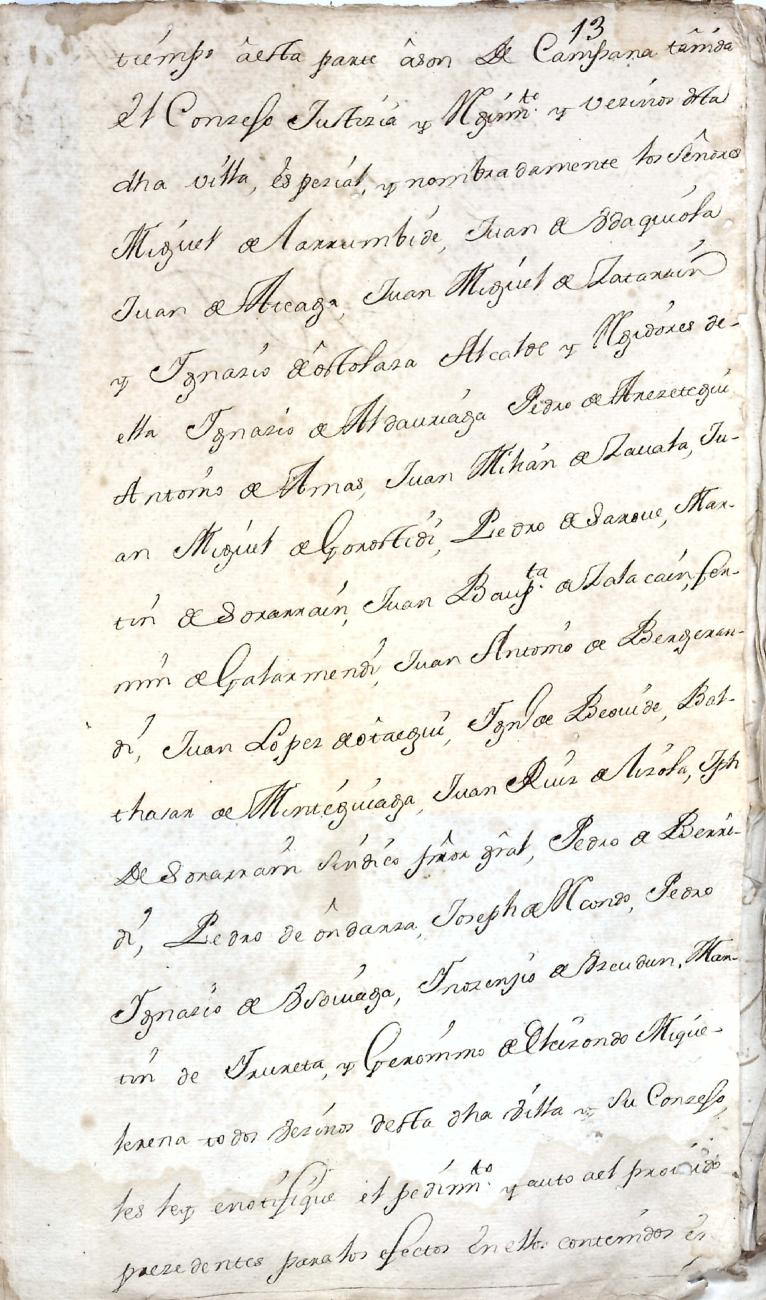 13
tiempo aesta parte âson de Campana tañida
el Conzejo Justizia y Rexim.to y vezinos dela
dha villa, espezial, y nombradamente los señores
Miguel de Larrumbide, Juan de
Juan de Ateaga, Juan Miguel de Zatarain
y Ygnazio de ôstolaza Alcalde y Rexidores de-
ella Ygnazio de Aldauriaga Pedro de Arezetegui
Antonio de Arnas, Juan Milian de Zauala, Ju-
an Miguel de Gorostidi, Pedro de Mar-
tin de Sorarrain, Juan Baup.ta de Zalacain, fer-
min de Galarmendi, Juan Antonio de
di, Juan Lopez de ôtaegui, Ygn.o de Beouide, Bal-
thasar de Minteguiaga, Juan Ruiz de Lizola, Jph
de Sorarrain sindico prôr grâl, Pedro de Berri-
di, Pedro de ôndarza, Joseph de Pedro
Ygnazio de Ynozenzio de Mar-
tin de Yrureta, y Geronimo de Elizondo Migue-
lerena todos vezinos desta dha villa y su Conzejo
les ley enotifique el pedim.to y auto del proveido
prezedentes para los efectos en ellos contenidos en